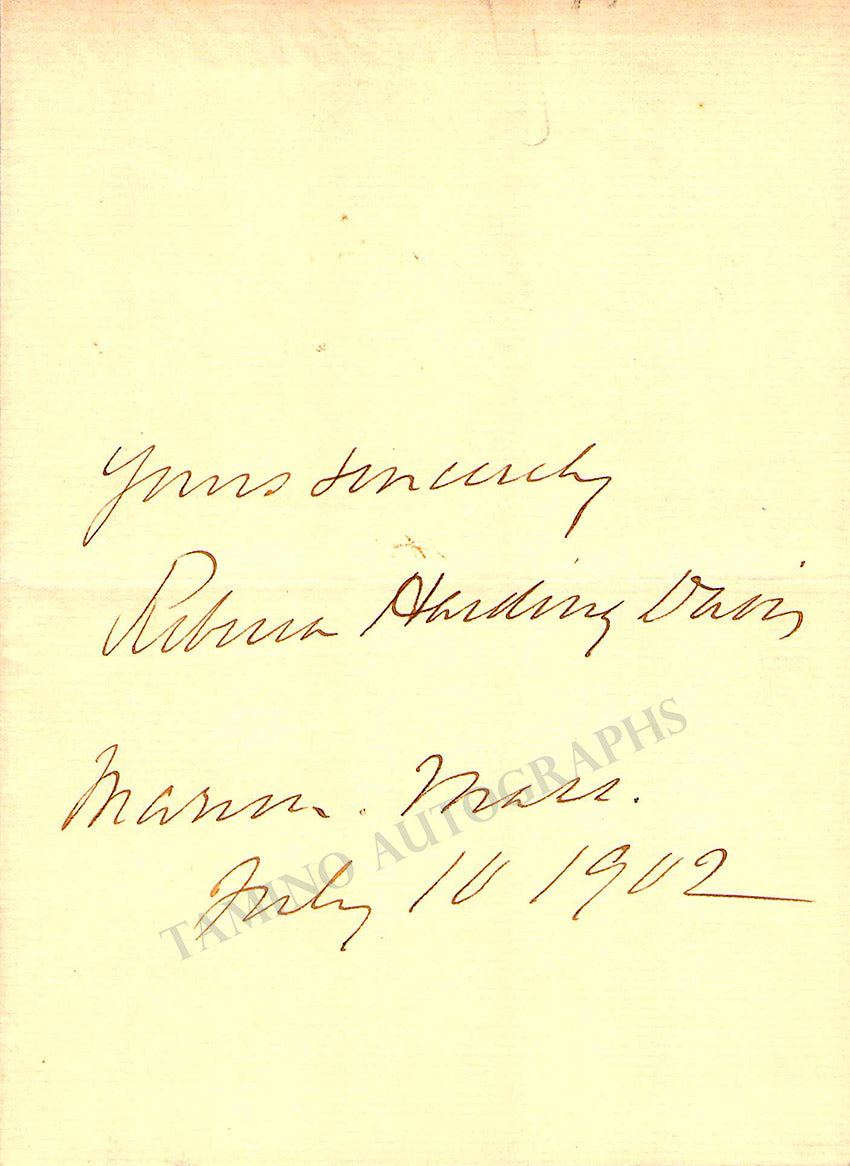 Yours sincerely
Rebecca Harding Davis
Marion. Mass.
July 10 1902
TAMINO AUTOGRAPHS